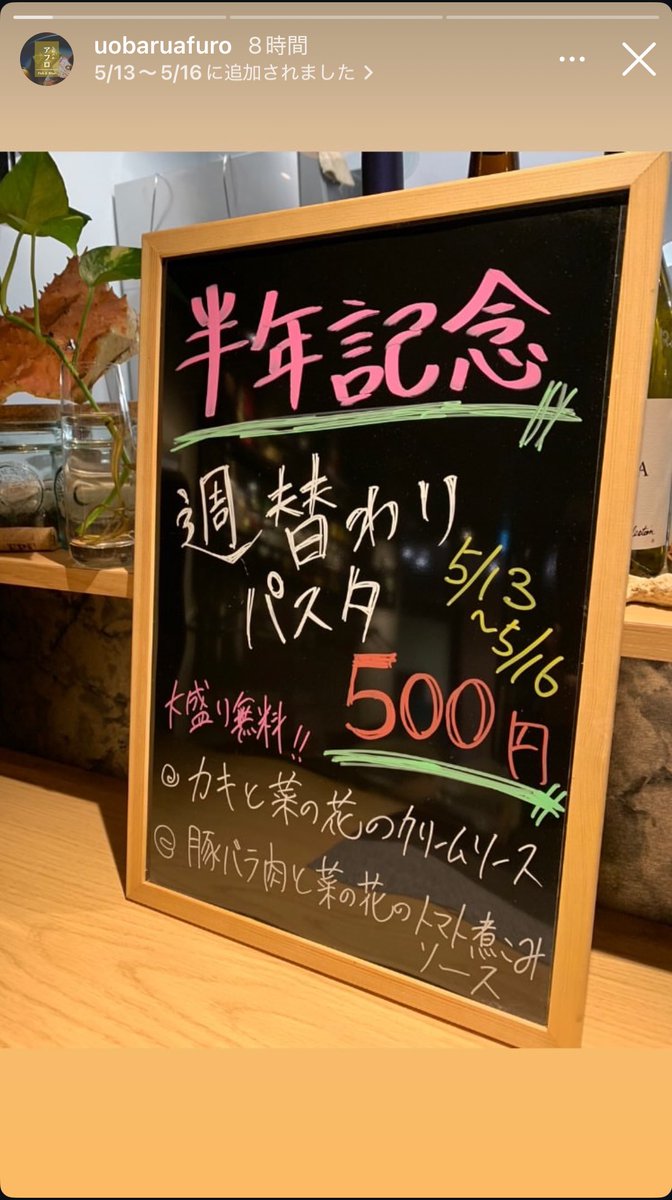 uobaruafuro 8時間
5/13～5/16に追加されました
アフロ
半年記念
週替わり
パスタ
5/13
～5/16
大盛り無料!!
500円
◎カキと菜の花のクリームソース
◎豚バラ肉と菜の花のトマト煮こみ
ソース